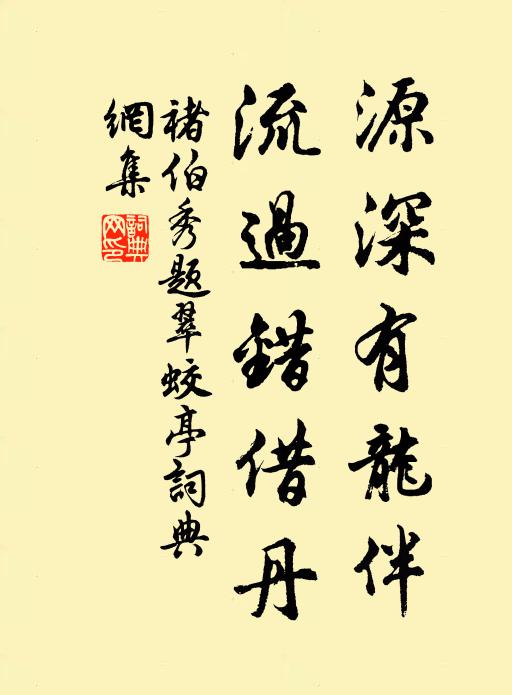 源深有龍伴
流過錯借丹
褚伯秀题翠蛟亭詞典
網集
詞典
网印